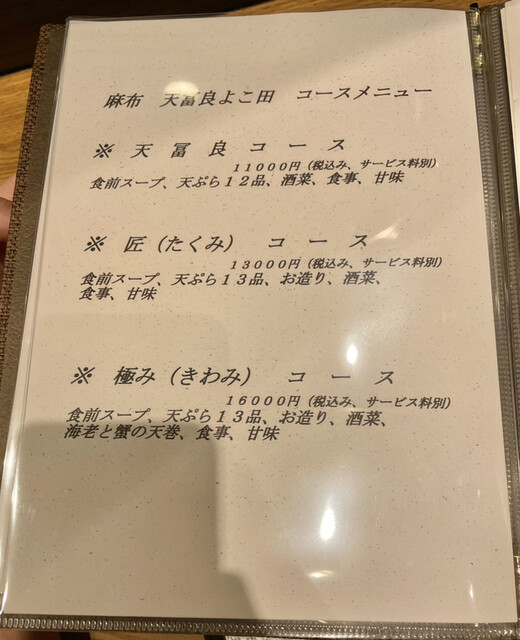 麻布　天冨良よこ田　コースメニュー
※　天　冨　良　コ　ー　ス
１１０００円（税込み、サービス料別）
食前スープ、天ぷら１２品、酒菜、食事、甘味
※　匠（たくみ）　コ　ー　ス
１３０００円（税込み、サービス料別）
食前スープ、天ぷら１３品、お造り、酒菜、
食事、甘味
※　極み（きわみ）　コ　ー　ス
１６０００円（税込み、サービス料別）
食前スープ、天ぷら１３品、お造り、酒菜、
海老と蟹の天巻、食事、甘味